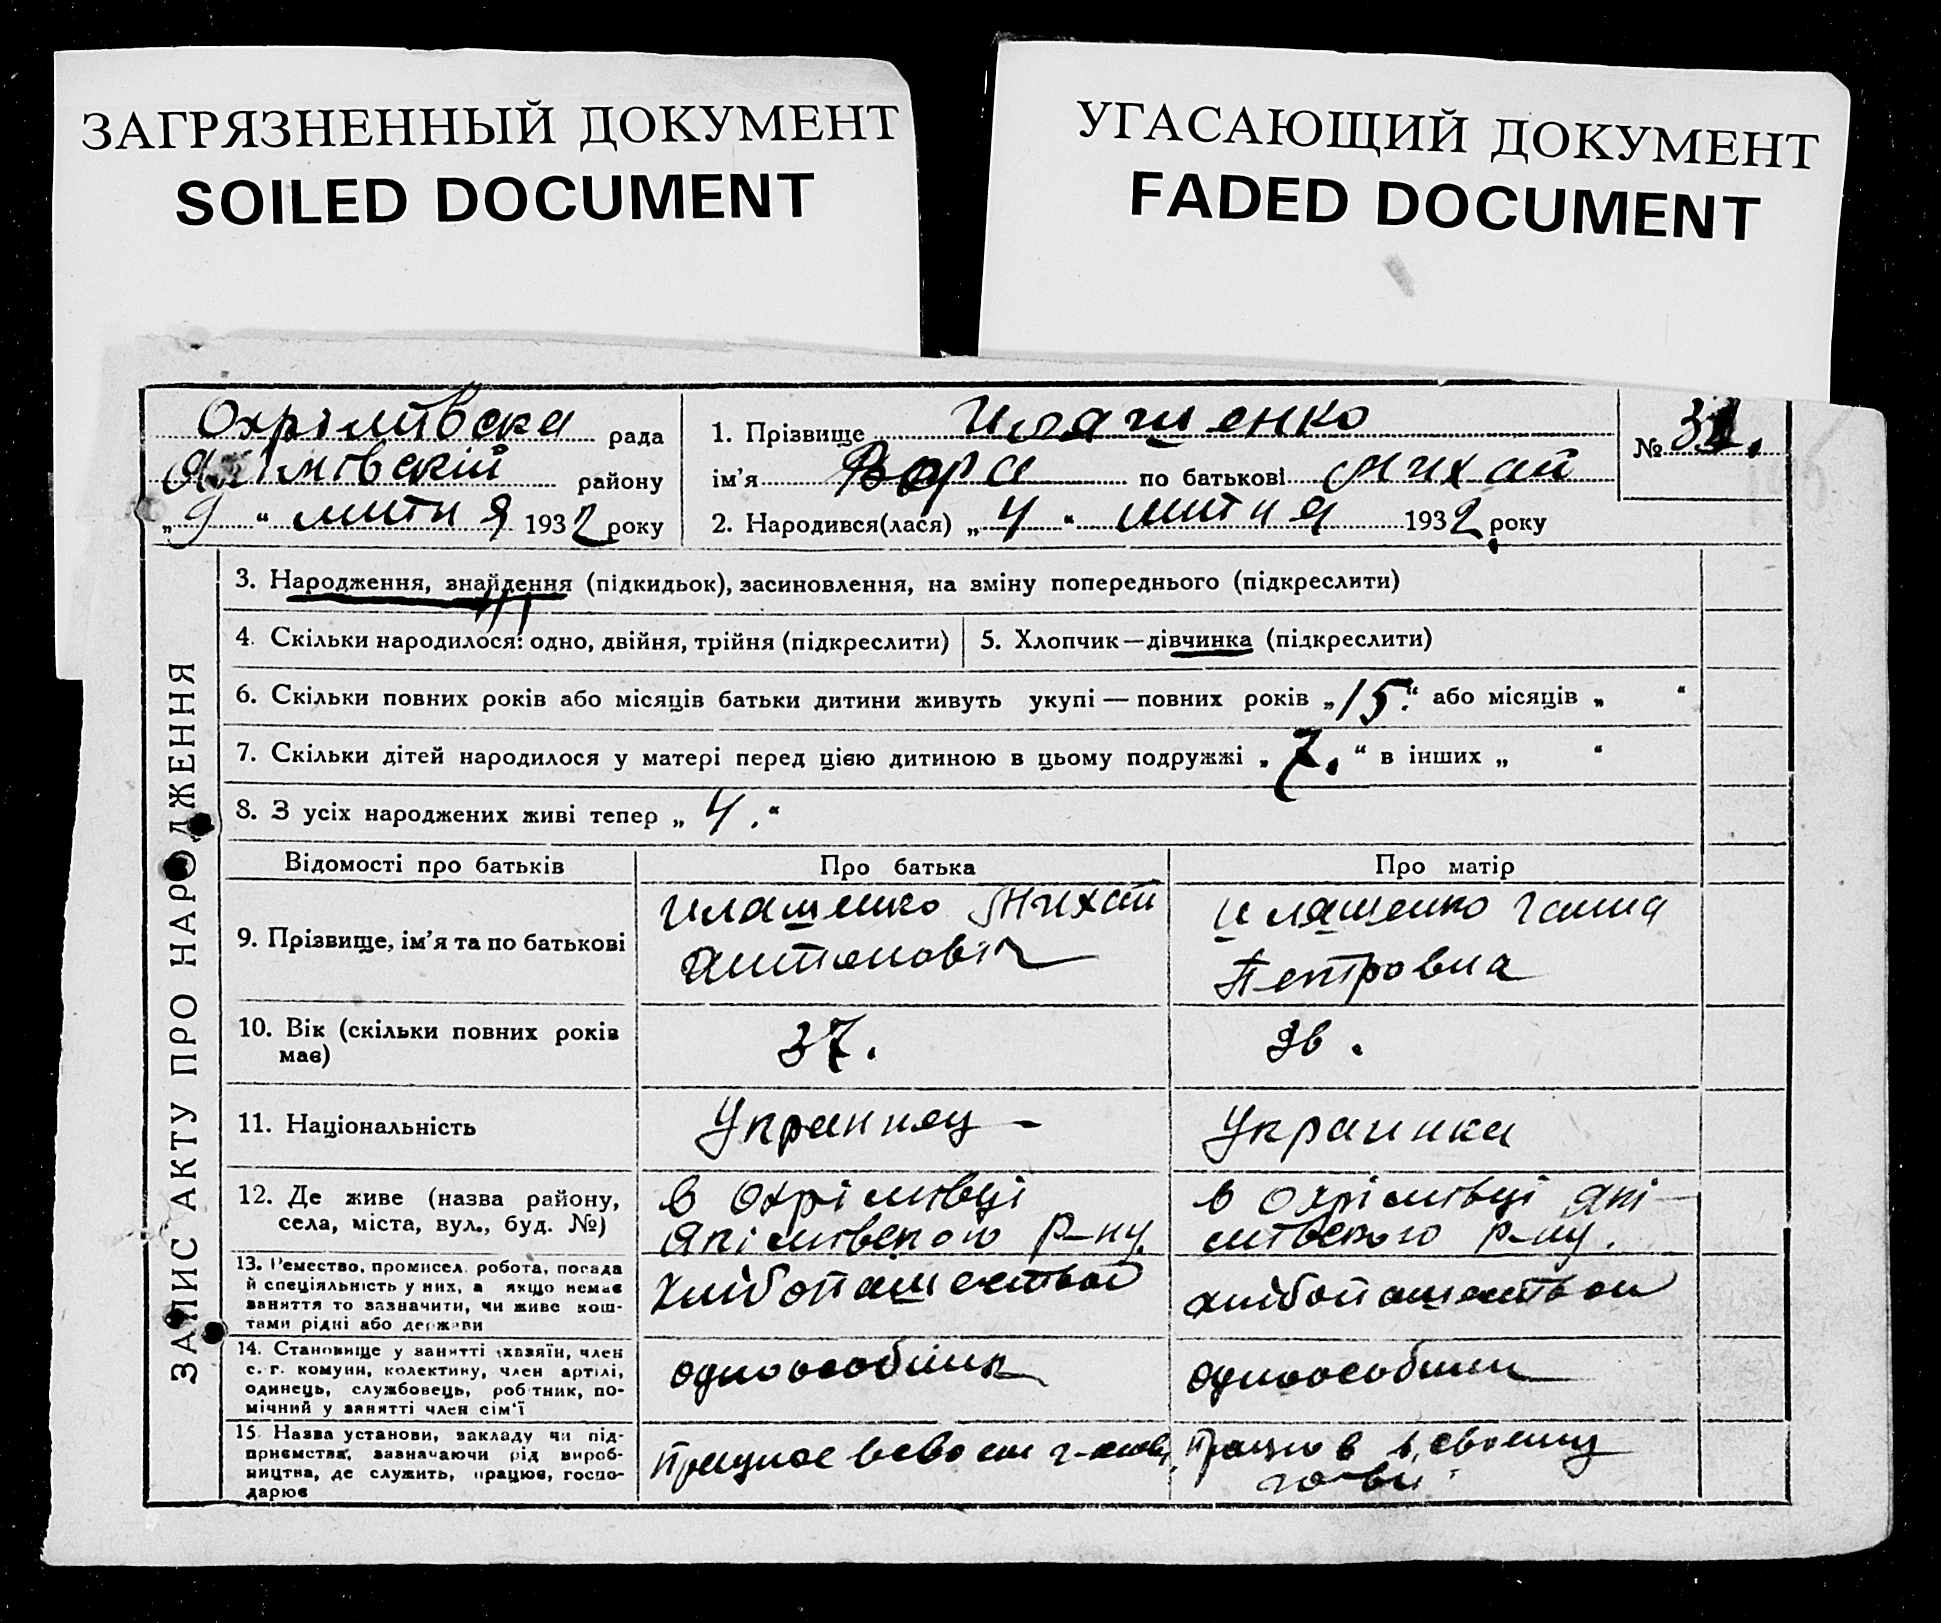 ЗАГРЯЗНЕННЫЙ ДОКУМЕНТ
SOILED DOCUMENT
УГАСАЮЩИЙ ДОКУМЕНТ
FADED DOCUMENT
Охрімівска рада
Якімівскій району
„9“ лютня 1932 року
1. Прізвище Иляшенко
ім’я Вера по батькові Михай
2. Народився(лася) „4“ лютня 1932 року
№ 31.
ЗАПИС АКТУ ПРО НАРОДЖЕННЯ
3. Народження, знайдення (підкидьок), засиновлення, на зміну попереднього (підкреслити)
4. Скільки народилося: одно, двійня, трійня (підкреслити)
5. Хлопчик—дівчинка (підкреслити)
6. Скільки повних років або місяців батьки дитини живуть укупі — повних років „15.“ або місяців „ “
7. Скільки дітей народилося у матері перед цією дитиною в цьому подружжі „7.“ в інших „ “
8. З усіх народжених живі тепер „4.“
Відомості про батьків
Про батька
Про матір
9. Прізвище, ім’я та по батькові
Иляшенко Михай
Антоновіч
Иляшенко Ганна
Петровна
10. Вік (скільки повних років
має)
37.
36.
11. Національність
Украинец –
Украинка
12. Де живе (назва району,
села, міста, вул., буд. №)
в Охрімівці
Якімівского р-ну.
в Охрімівці Які
мівского р-ну.
13. Ремество, промисел, робота, посада
й спеціяльність у них, а якщо немає
заняття то зазначити, чи живе кош-
тами рідні або держави
хлібопашество
хлібопашество
14. Становище у занятті (хазяїн, член
с.-г. комуни, колективу, член артілі,
одинець, службовець, робітник, по-
мічний у занятті член сім’ї
одноособник
одноособник
15. Назва установи, закладу чи під-
приємства, зазначаючи рід вироб-
ництва, де служить, працює, госпо-
дарює
працює в свому
в своєму